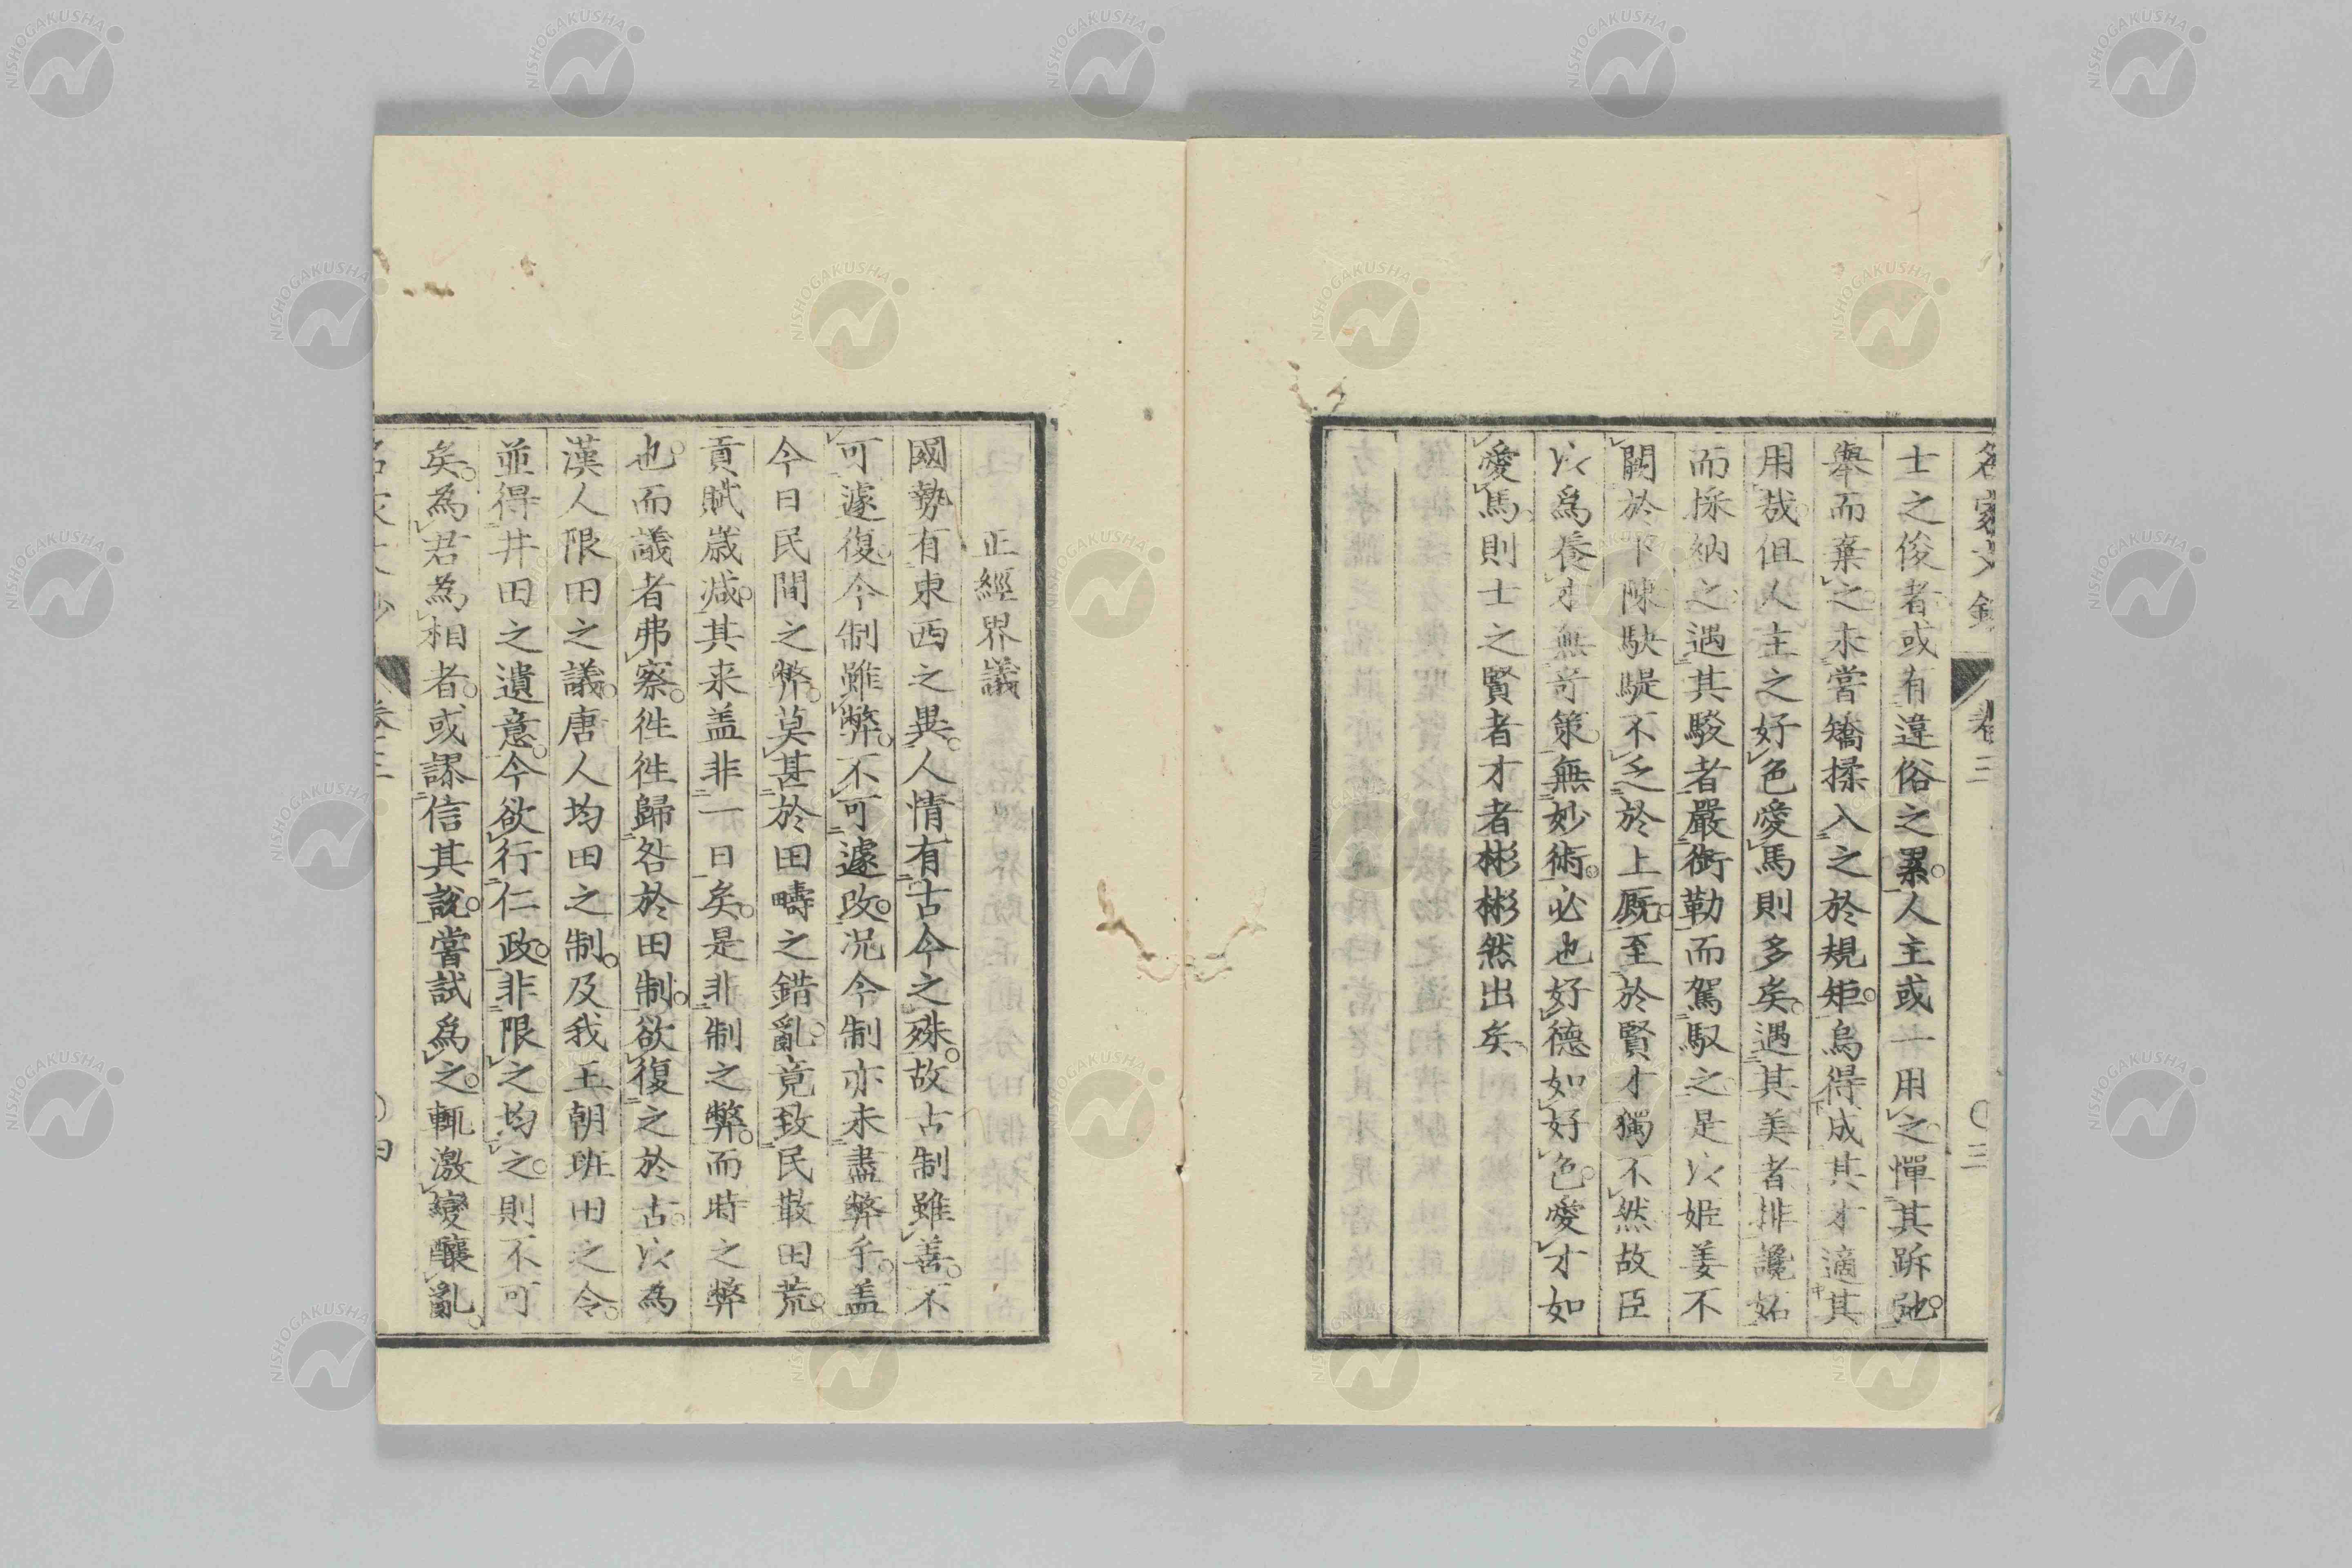 名家文鈔 卷三 〇三
士之俊者或有違俗之累人主或一用之憚其跅弛
舉而棄之未嘗矯揉入之於規矩烏得成其才適其
用哉但人主之好色愛馬則多矣遇其美者排讒妬
而採納之遇其駿者嚴銜勒而駕馭之是以姬姜不
闕於下陳駃騠不乏於上厩至於賢才獨不然故臣
以爲養才無奇策無妙術必也好德如好色愛才如
愛馬則士之賢者才者彬彬然出矣
正經界議
國勢有東西之異人情有古今之殊故古制雖善不
可遽復今制雖弊不可遽改况今制亦未盡弊乎盖
今日民間之弊莫甚於田疇之錯亂竟致民散田荒
貢賦歲減其来盖非一日矣是非制之弊而時之弊
也而議者弗察徃徃歸咎於田制欲復之於古以為
漢人限田之議唐人均田之制及我王朝班田之令
並得井田之遺意今欲行仁政非限之均之則不可
矣為君為相者或謬信其說嘗試爲之輒激變釀亂
名家文鈔 卷三 〇四
NISHOGAKUSHA